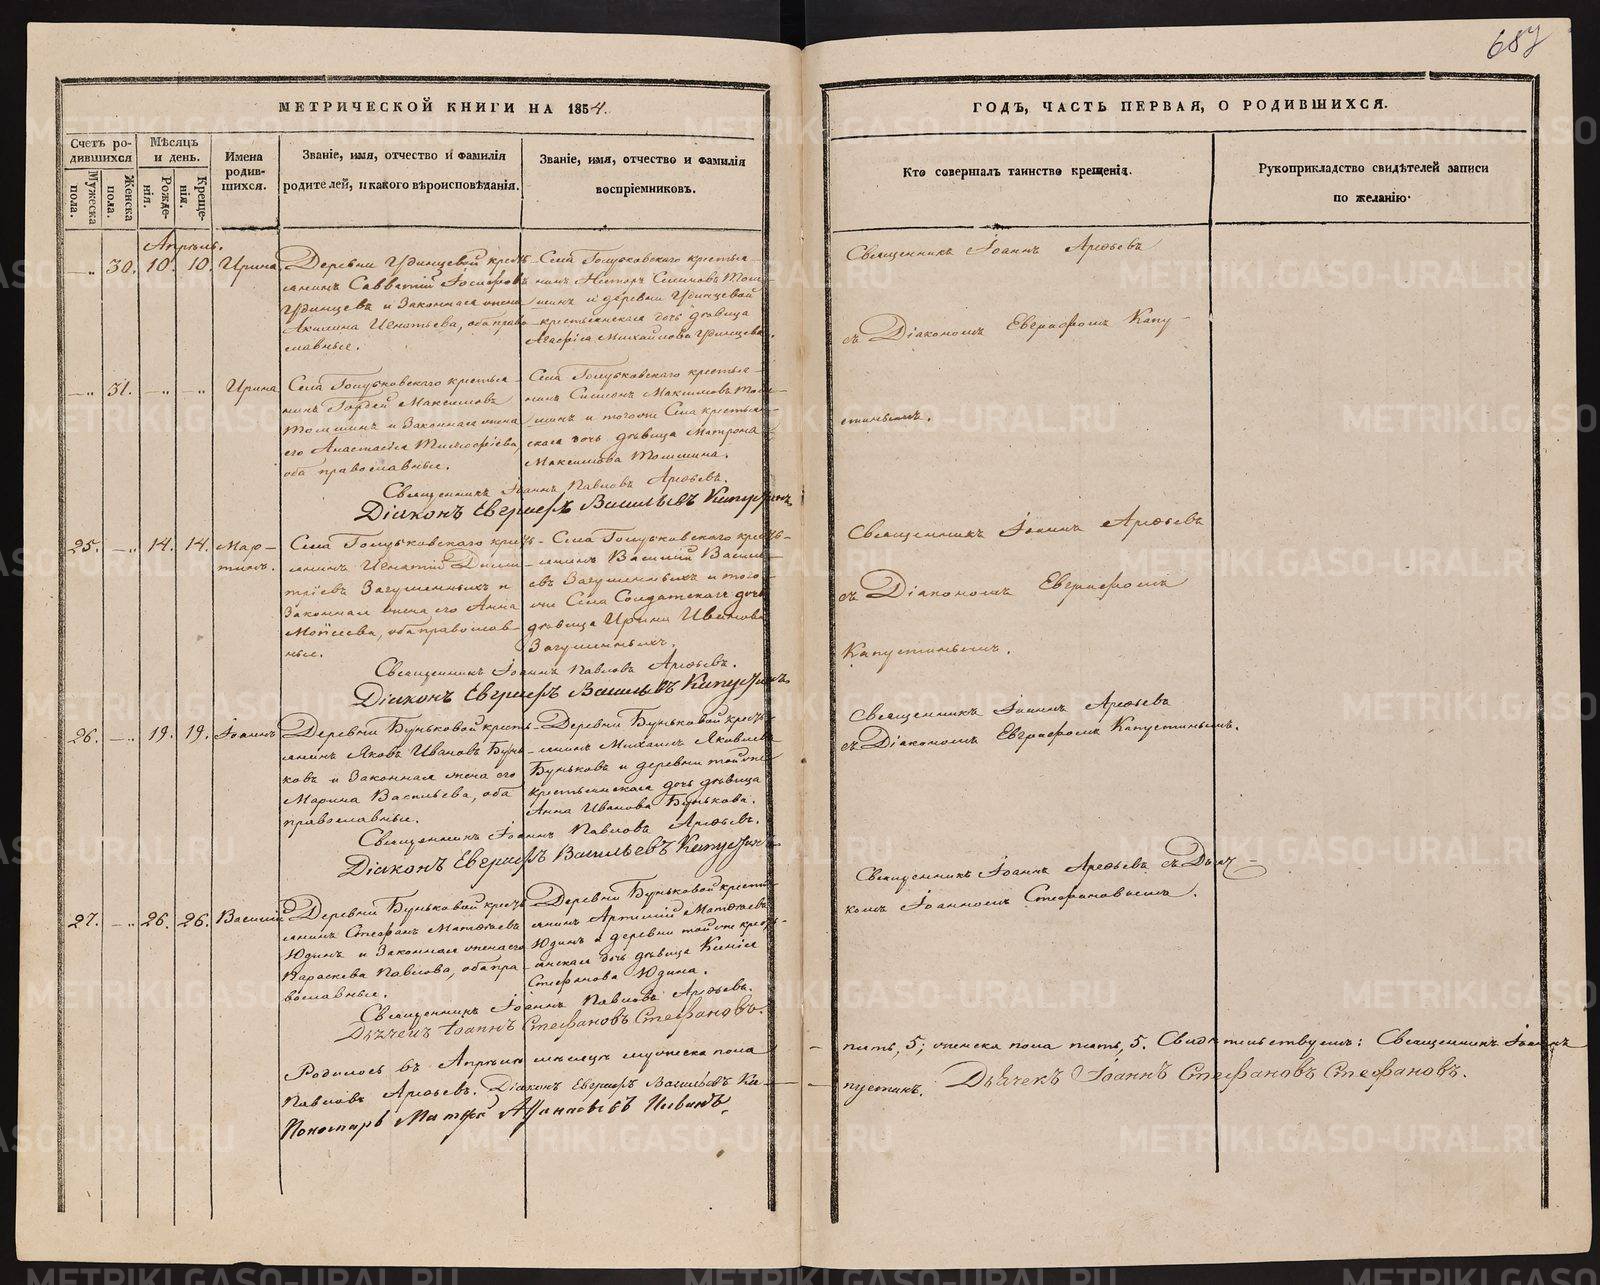 687
МЕТРИЧЕСКОЙ КНИГИ НА 1854.
ГОДЪ, ЧАСТЬ ПЕРВАЯ, О РОДИВШИХСЯ.
Счетъ ро-
дившихся
Мужеска
пола.
Женска
пола.
Мѣсяцъ
и день.
Рожде-
нія.
Креще-
нія.
Имена
родив-
шихся.
Званіе, имя, отчество и фамилія
родителей, и какого вѣроисповѣданія.
Званіе, имя, отчество и фамилія
воспріемниковъ.
Кто совершалъ таинство крещенія.
Рукоприкладство свидѣтелей записи
по желанію.
Апрѣль.
30. 10. 10. Ирина
Деревни Удинцевой кресть-
янинъ Савватій Іосифовъ
Удинцевъ и Законная жена
Акилина Игнатьева, оба право-
славные.
Села Голубковскаго крестья-
нинъ Несторъ Симоновъ Том-
шинъ и деревни Удинцевой
крестьянская дочь дѣвица
Агафія Михайлова Удинцева.
Священникъ Іоаннъ Арефьевъ
съ Діакономъ Евграфомъ Капу-
стинымъ.
31. Ирина
Села Голубковскаго крестья-
нинъ Гордей Максимовъ
Томшинъ и Законная жена
его Анастасія Тимофѣева,
оба православные.
Села Голубковскаго крестья-
нинъ Симеонъ Максимовъ Том-
шинъ и тогоже Села крестьян-
ская дочь дѣвица Матрона
Максимова Томшина.
Священникъ Іоаннъ Павловъ Арефьевъ.
Діаконъ Евграфъ Васильевъ Капустинъ
25. 14. 14. Мар-
тинъ.
Села Голубковскаго кресть-
янинъ Игнатій Дими-
тріевъ Загуменныхъ и
Законная жена его Анна
Моисеева, оба православ-
ные.
Села Голубковскаго кресть-
янинъ Василій Василь-
евъ Загуменныхъ и того-
же Села Солдатская дочь
дѣвица Ирина Иванова
Загуменныхъ.
Священникъ Іоаннъ Арефьевъ
съ Діакономъ Евграфомъ
Капустинымъ.
Священникъ Іоаннъ Павловъ Арефьевъ.
Діаконъ Евграфъ Васильевъ Капустинъ
26. 19. 19. Іоаннъ
Деревни Буньковой кресть-
янинъ Яковъ Ивановъ Бунь-
ковъ и Законная жена его
Марина Васильева, оба
православные.
Деревни Буньковой кресть-
янинъ Михаилъ Яковлевъ
Буньковъ и деревни тойже
крестьянская дочь дѣвица
Анна Иванова Бунькова.
Священникъ Іоаннъ Арефьевъ
съ Діакономъ Евграфомъ Капустинымъ.
Священникъ Іоаннъ Павловъ Арефьевъ.
Діаконъ Евграфъ Васильевъ Капустинъ
27. 26. 26. Василій
Деревни Буньковой кресть-
янинъ Стефанъ Матфѣевъ
Юдинъ и Законная жена его
Параскева Павлова, оба пра-
вославные.
Деревни Буньковой кресть-
янинъ Артемій Матфѣевъ
Юдинъ и деревни тойже кресть-
янская дочь дѣвица Ксенія
Стефанова Юдина.
Священникъ Іоаннъ Арефьевъ съ Дьяч-
комъ Іоанномъ Стефановымъ.
Священникъ Іоаннъ Павловъ Арефьевъ.
Дьячекъ Іоаннъ Стефановъ Стефановъ.
Родилось въ Апрѣлѣ мѣсяцѣ мужеска пола
пять, 5; женска пола пять, 5. Свидѣтельствуемъ: Священникъ Іоаннъ
Павловъ Арефьевъ. Діаконъ Евграфъ Васильевъ Ка-
пустинъ. Дьячекъ Іоаннъ Стефановъ Стефановъ.
Пономарь Матфей Афанасьевъ
METRIKI.GASO-URAL.RU